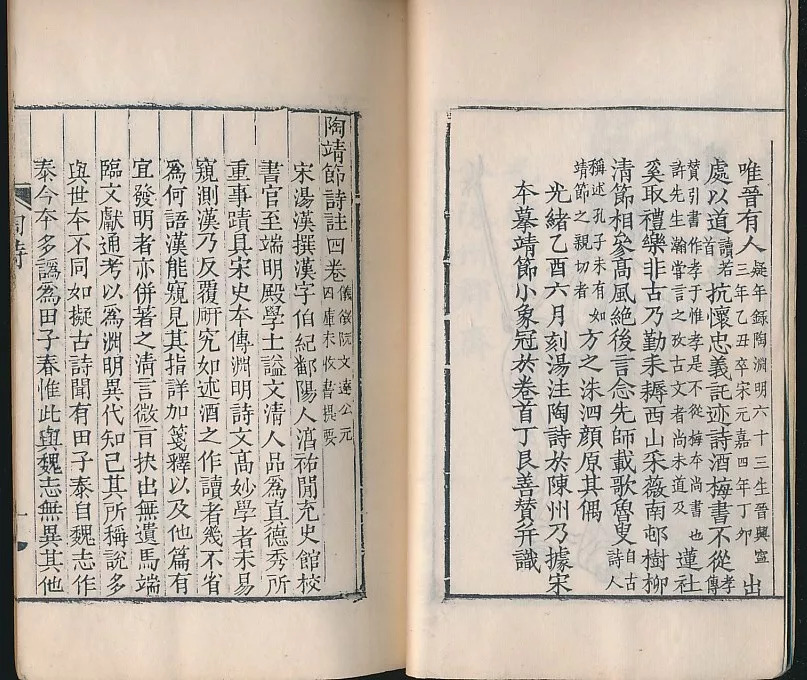 唯晉有人疑年錄陶淵明六十三生晉興寧三年乙丑卒宋元嘉四年丁卯出
處以道首讀若抗懷忠義託迹詩酒梅書不從孝傳
贊引書作孝于惟孝是不從梅本尚書也許先生瀚嘗言之攷古文者尚未道及蓮社
奚取禮樂非古乃勤耒耨西山采薇南邨樹柳
清節相參高風絶後言念先師載歌魯叟自古詩人
稱述孔子未有如靖節之親切者方之洙泗顏原其偶
光緒乙酉六月刻湯注陶詩於陳州乃據宋
本摹靖節小象冠於卷首丁艮善贊并識
陶靖節詩註四卷儀徵阮文達公元四庫未收書提要
宋湯漢撰漢字伯紀鄱陽人淳祐閒充史館校
書官至端明殿學士謚文清人品爲真德秀所
重事蹟具宋史本傳淵明詩文高妙學者未易
窺測漢乃反覆研究如述酒之作讀者幾不省
爲何語漢能窺見其指詳加箋釋以及他篇有
宜發明者亦併著之清言微旨抉出無遺馬端
臨文獻通考以爲淵明異代知己其所稱說多
與世本不同如擬古詩聞有田子泰自魏志作
泰今本多譌爲田子春惟此與魏志無異其他
陶詩
一